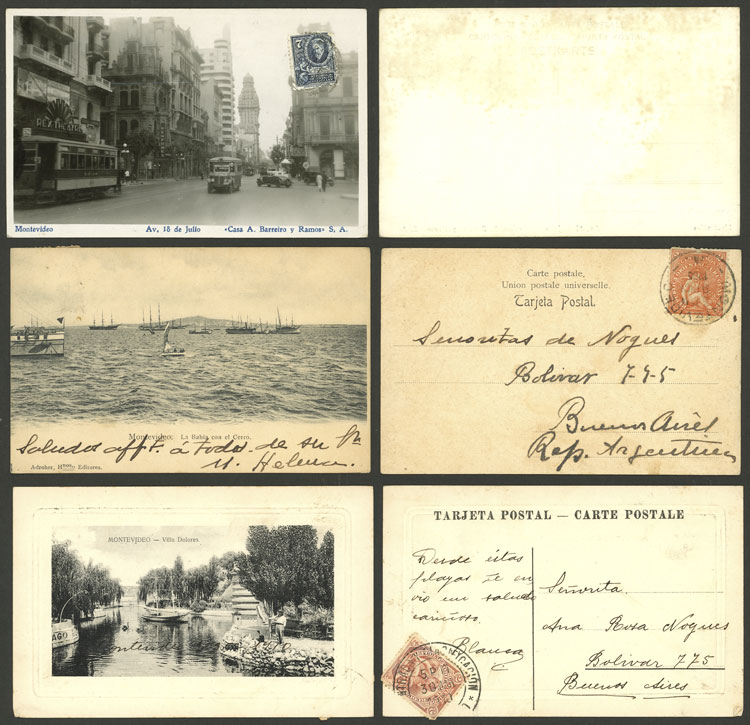 REX THEATRE
Montevideo Av, 18 de Julio «Casa A. Barreiro y Ramos» S. A.
Montevideo: La Bahía con el Cerro.
Saludos afft. á todos de su
M. Helena.
Adroher, Hnos. Editores.
Carte postale.
Union postale universelle.
Tarjeta Postal.
Señoritas de Nogues
Bolivar 775
Buenos Aires
Rep. Argentina
MONTEVIDEO — Villa Dolores
AGO
TARJETA POSTAL — CARTE POSTALE
Desde éstas
playas te en
vio un saludo
cariñoso
Blanca
Señorita.
Ana Rosa Nogues
Bolivar 775
Buenos Aires